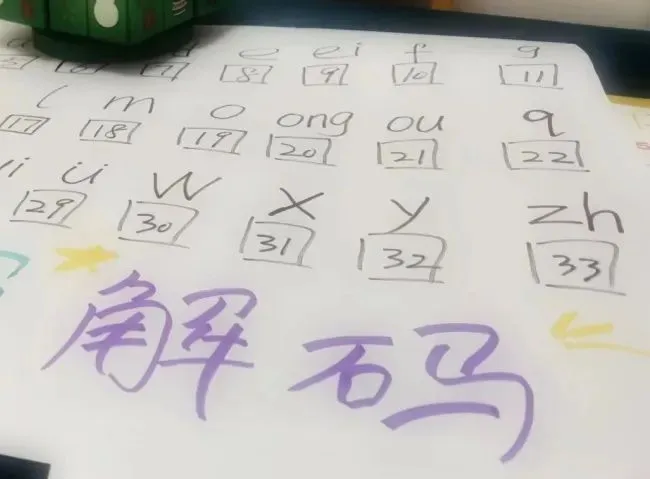 e ei f g
8 9 10 11
l m o ong ou q
17 18 19 20 21 22
ü W X y zh
29 30 31 32 33
解码